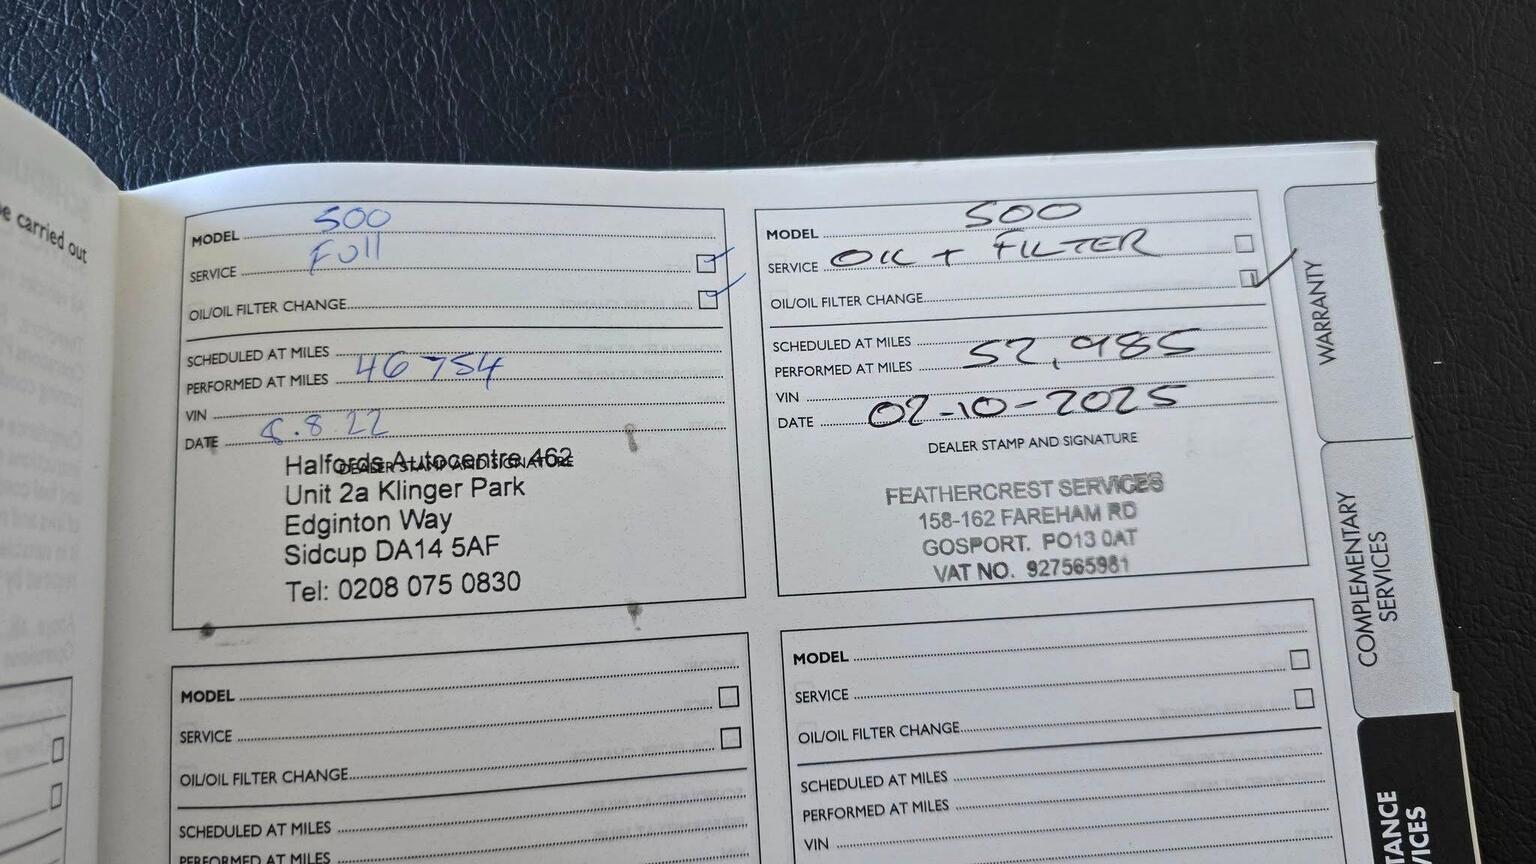 e carried out
MODEL 500
SERVICE Full
OIL/OIL FILTER CHANGE
SCHEDULED AT MILES
PERFORMED AT MILES 46 754
VIN
DATE 8.8 22
DEALER STAMP AND SIGNATURE
Halfords Autocentre 462
Unit 2a Klinger Park
Edginton Way
Sidcup DA14 5AF
Tel: 0208 075 0830
MODEL 500
SERVICE OIL + FILTER
OIL/OIL FILTER CHANGE
SCHEDULED AT MILES
PERFORMED AT MILES 52,985
VIN
DATE 02-10-2025
DEALER STAMP AND SIGNATURE
FEATHERCREST SERVICES
158-162 FAREHAM RD
GOSPORT. PO13 0AT
VAT NO. 927565981
MODEL
SERVICE
OIL/OIL FILTER CHANGE
SCHEDULED AT MILES
PERFORMED AT MILES
MODEL
SERVICE
OIL/OIL FILTER CHANGE
SCHEDULED AT MILES
PERFORMED AT MILES
VIN
WARRANTY
COMPLEMENTARY
SERVICES
TANCE
VICES